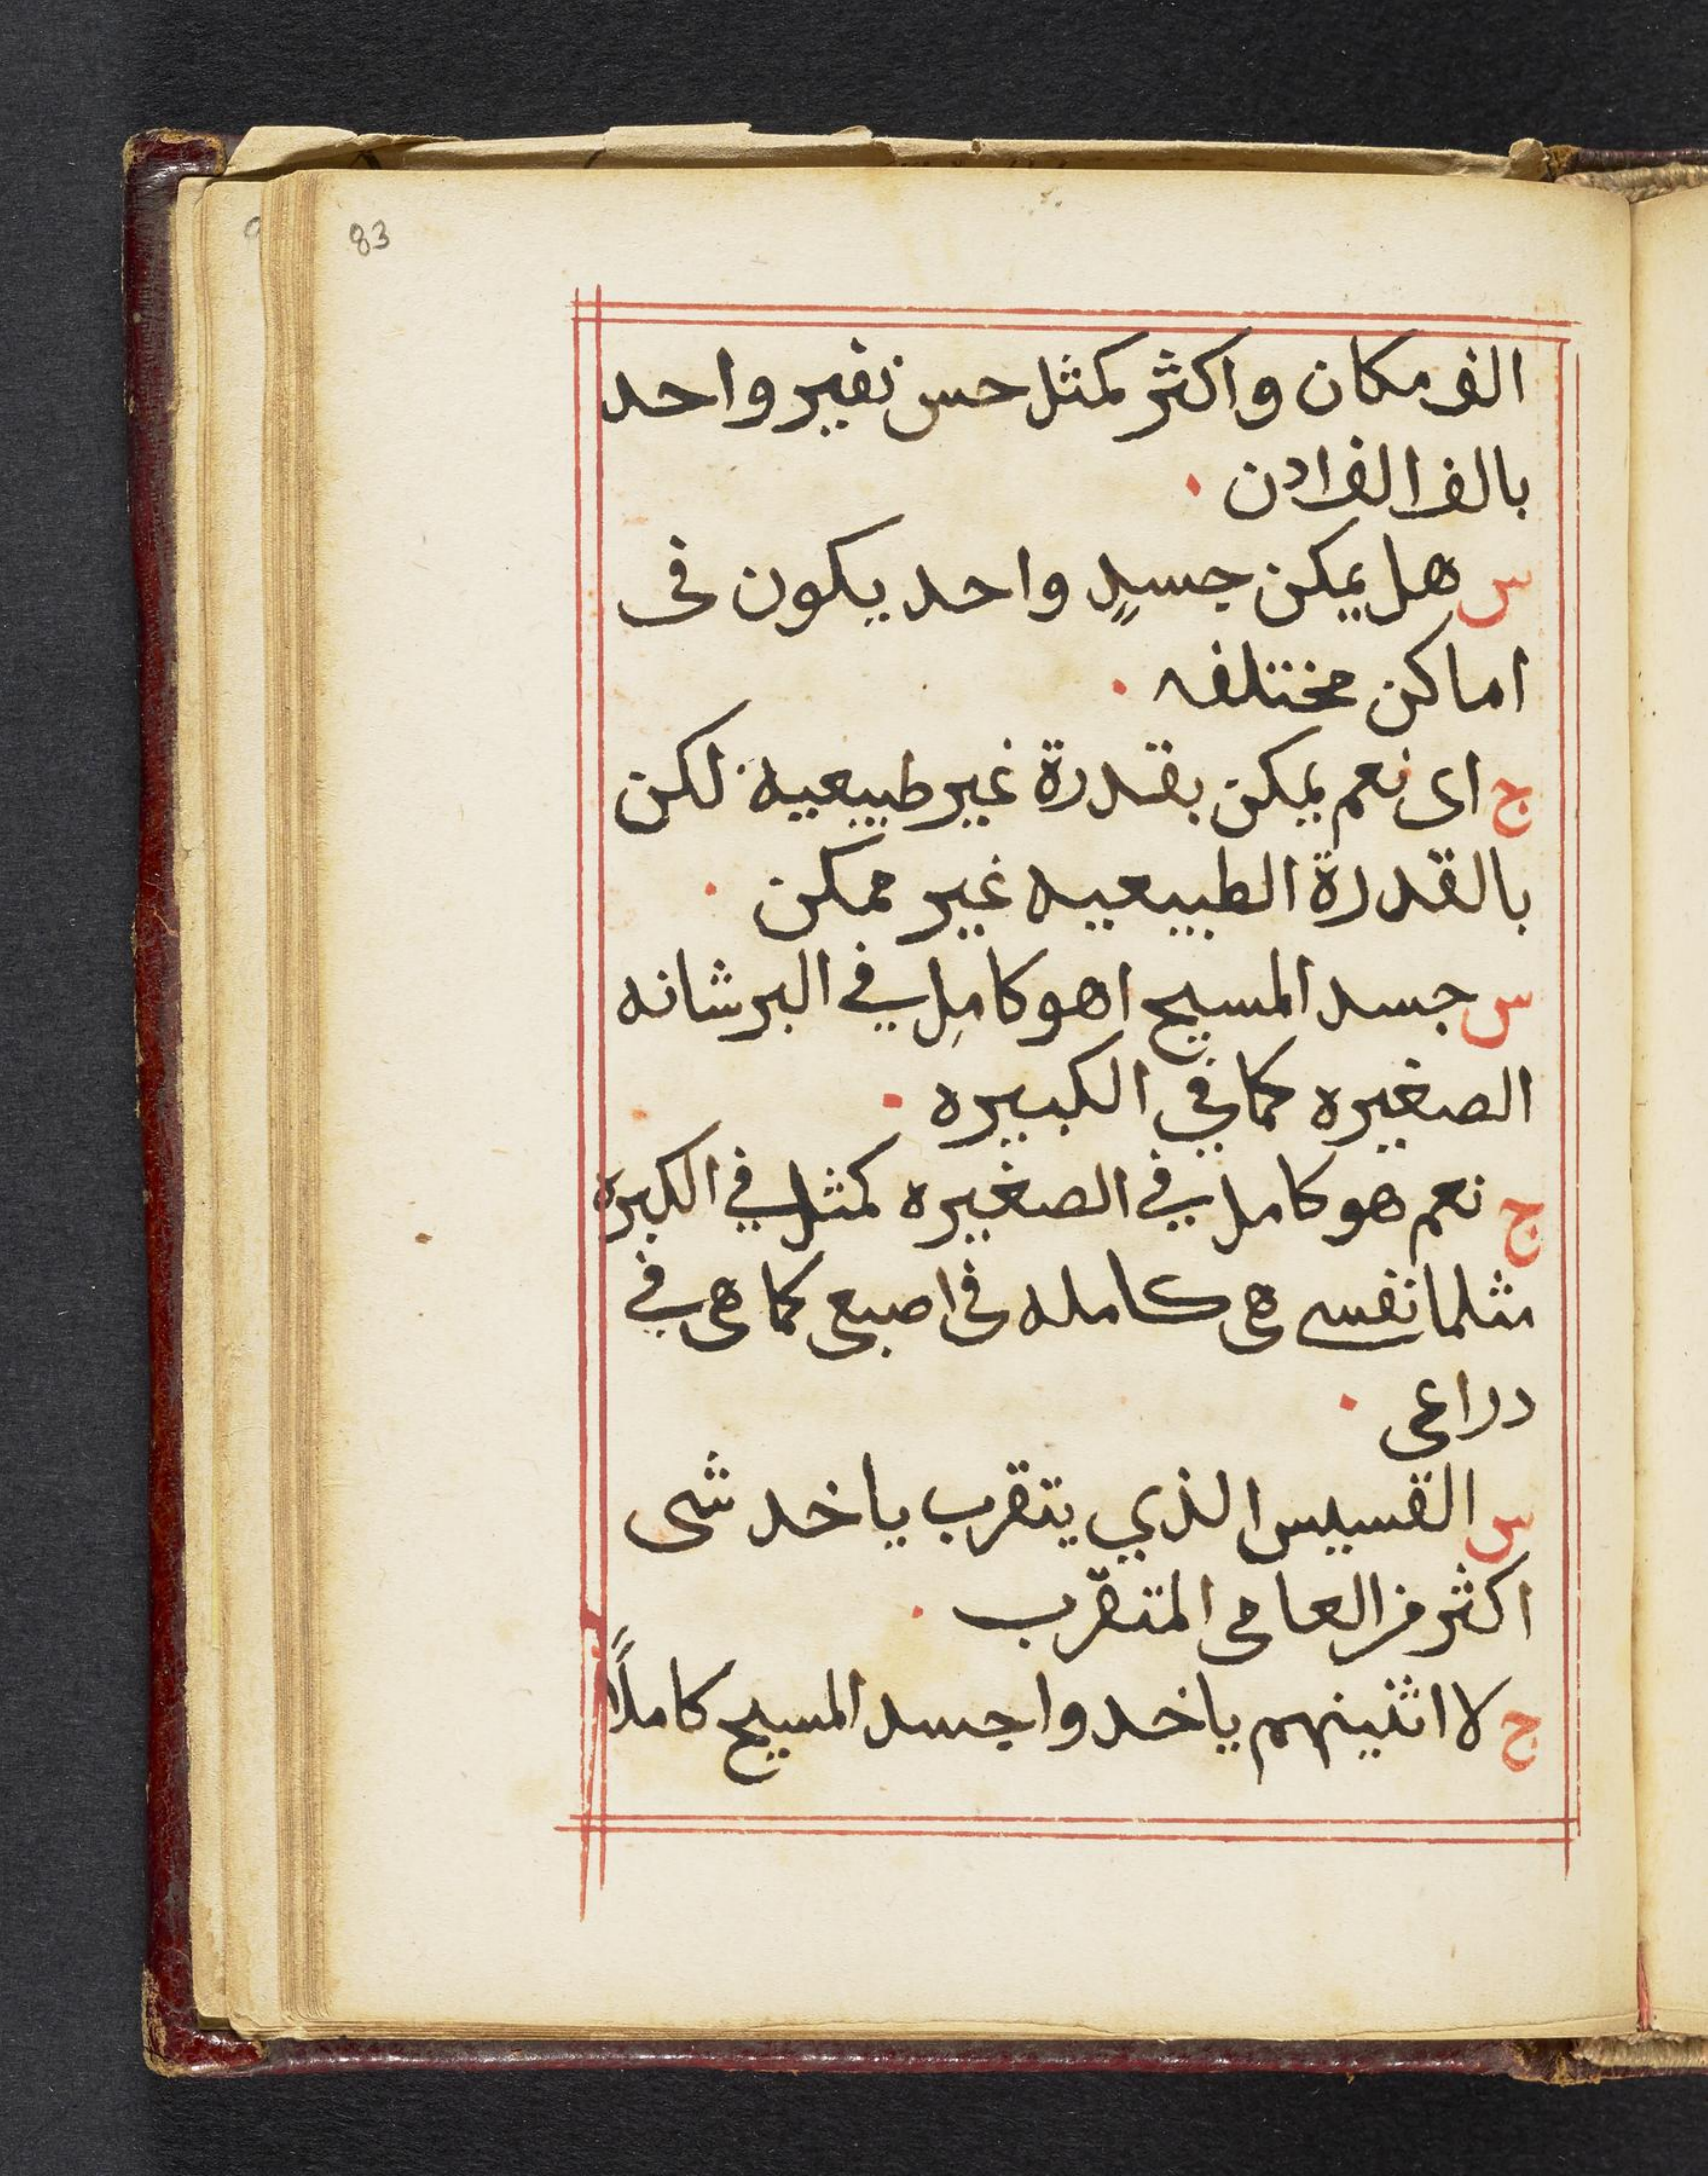 83
الف مكان واكثر كمثل حس نفير واحد
بالف الف ادن ·
س هل يمكن جسدٍ واحد يكون فى
اماكن مختلفه ·
ج اى نعم يمكن بقدرة غير طبيعية لكن
بالقدرة الطبيعيه غير ممكن ·
س جسد المسيح اهو كامِل في البرشانه
الصغيره كما في الكبيره ·
ج نعم هو كامل في الصغيره كمثل في الكبيرة
مثلما نفسى هى كامله فى اصبعى كما هى في
دراعى ·
س القسيس الذي يتقرب ياخد شى
اكثر من العامى المتقرب ·
ج لا اثنينهم ياخدوا جسد المسيح كاملًا